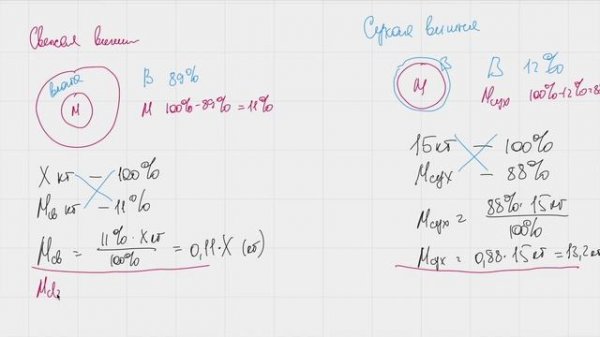 Свежая вишн
влага
М
В 89%
М 100%-89% = 11%
X кг — 100%
Мсв кг — 11%
Мсв = 11% · X кг / 100% = 0,11·X (кг)
Мсв
Сухая вишня
В
М
В 12%
Мсух 100%-12%=8
15кг — 100%
Мсух — 88%
Мсух = 88% · 15кг / 100%
Мсух = 0,88·15кг =13,2кг